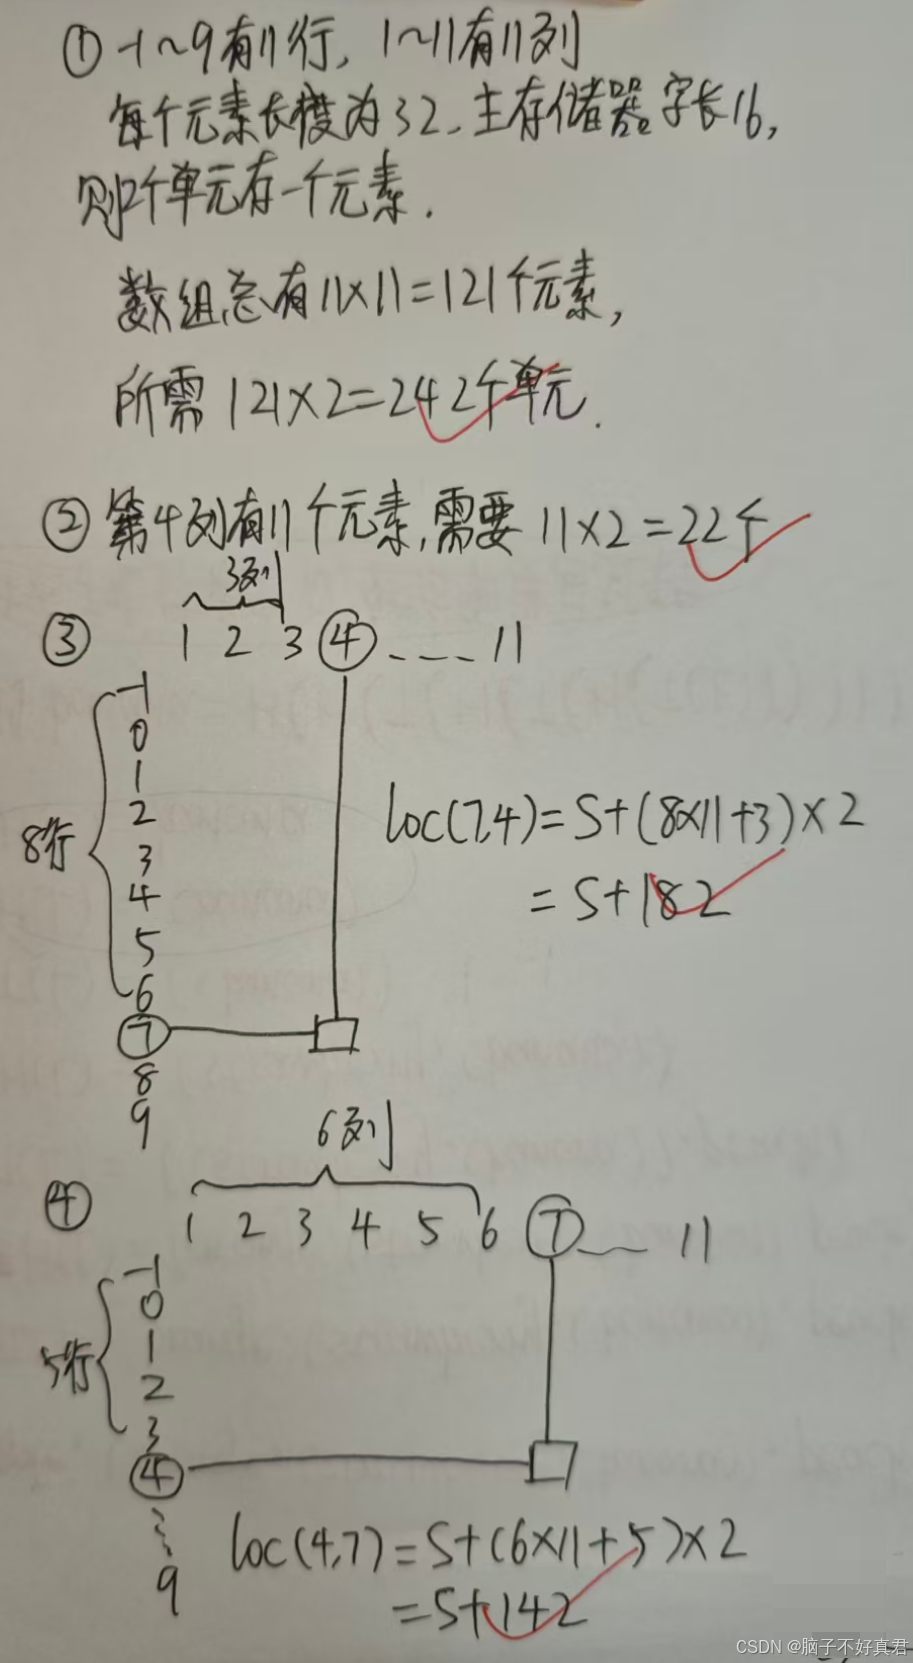 ① -1~9有11行, 1~11有11列
每个元素长度为32.主存储器字长16,
则2个单元存一个元素.
数组总有11×11=121个元素,
所需121×2=242个单元.
② 第4列有11个元素,需要11×2=22个
3列
③ 1 2 3 ④ --- 11
-1
0
1
2
8行
3
4
5
6
⑦
8
9
loc(7,4)=S+(8×11+3)×2
=S+182
6列
④ 1 2 3 4 5 6 ⑦ -- 11
-1
0
1
5行
2
3
④
9
loc(4,7)=S+(6×11+5)×2
=S+142
CSDN @脑子不好真君